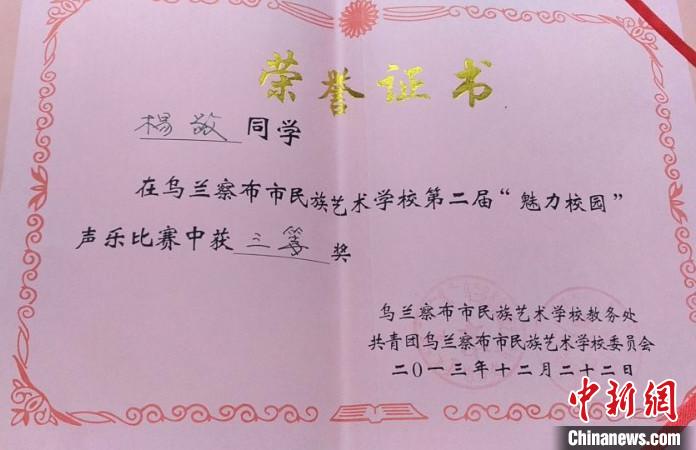 荣誉证书
杨敬同学
在乌兰察布市民族艺术学校第二届“魅力校园”
声乐比赛中获三等奖
乌兰察布市民族艺术学校教务处
共青团乌兰察布市民族艺术学校委员会
二〇一三年十二月二十二日
中新网
Chinanews.com